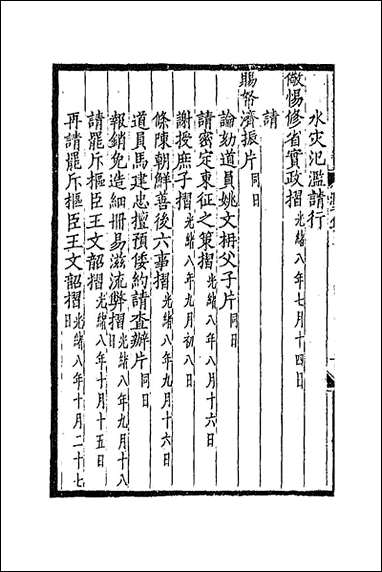 水灾氾濫請行
儆惕修省實政摺光緖八年七月十四日
請
賜帑濟振片同日
論劾道員姚文枬父子片同日
請密定東征之策摺光緖八年八月十六日
謝授庶子摺光緖八年九月初八日
條陳朝鮮善後六事摺光緖八年九月十六日
道員馬建忠擅預倭約請査辦片同日
報銷免造細冊易滋流弊摺光緖八年九月十八日
請罷斥樞臣王文韶摺光緖八年十月十五日
再請罷斥樞臣王文韶摺光緖八年十月二十七日